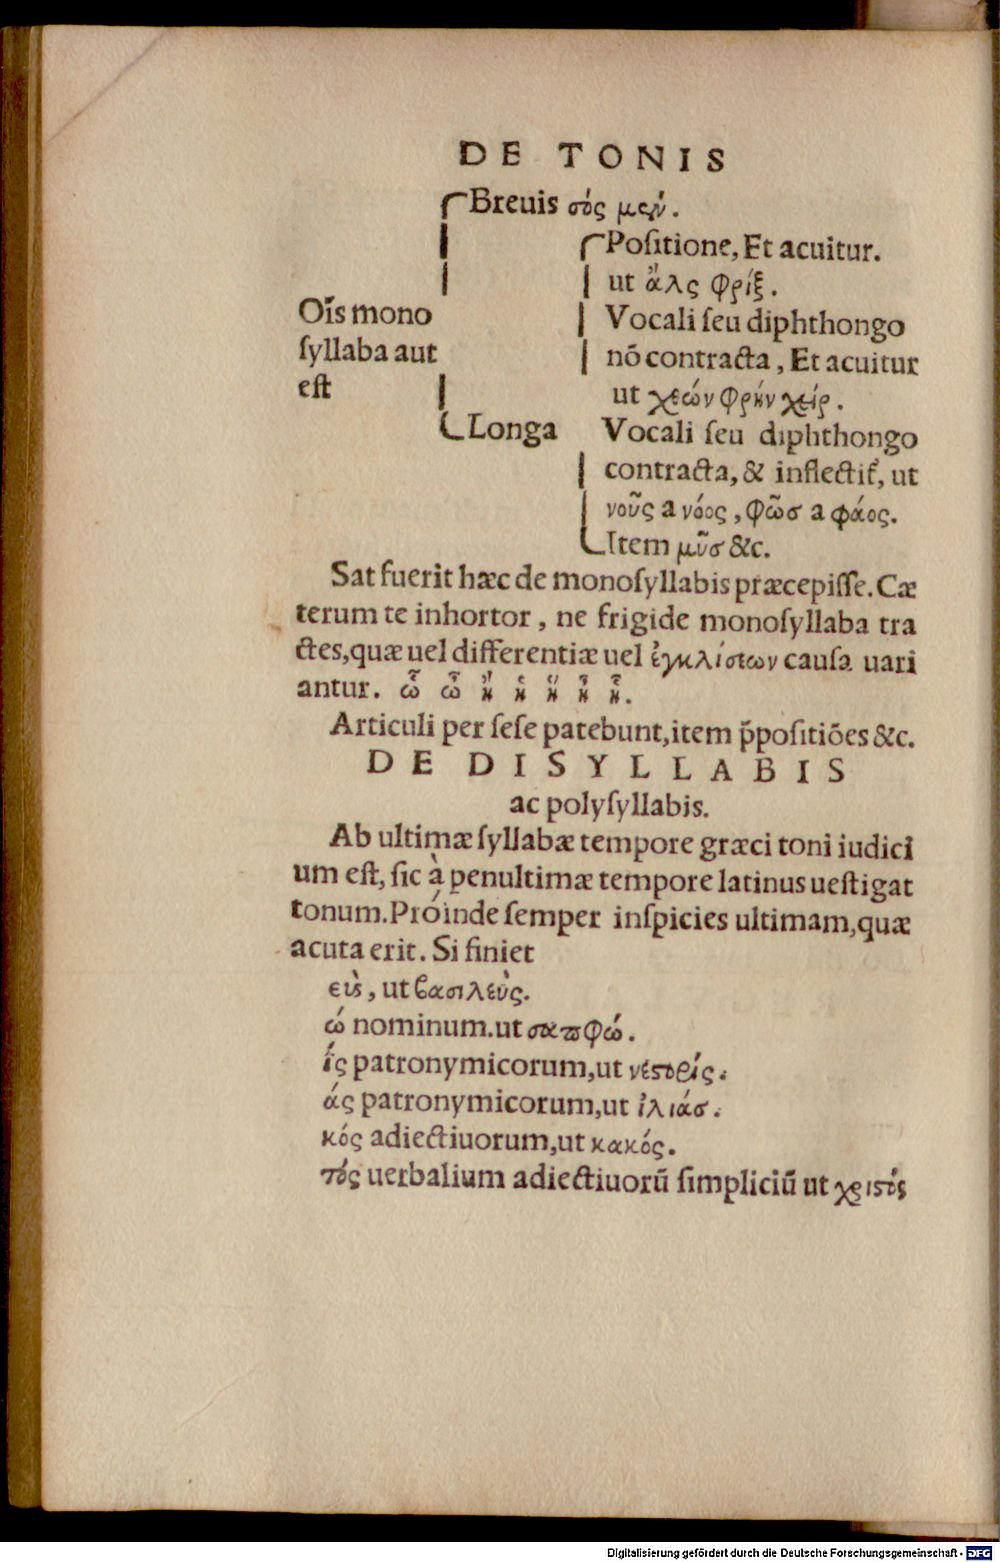 DE TONIS
Breuis σός μέν.
Poſitione, Et acuitur.
ut ἅλς φρίξ.
Oīs mono
ſyllaba aut
eſt
Vocali ſeu diphthongo
nō contracta, Et acuitur
ut χεών φρήν χείρ.
Longa
Vocali ſeu diphthongo
contracta, & inflectit᷑, ut
νοῦς a νόος, φῶσ a φάος.
Item μῦσ &c.
Sat fuerit hæc de monoſyllabis præcepiſſe. Cæ
terum te inhortor, ne frigide monoſyllaba tra
ctes, quæ uel differentiæ uel ἐγκλίσεων cauſa uari
antur.
Articuli per ſeſe patebunt, item p̄poſitiōes &c.
DE DISYLLABIS
ac polyſyllabis.
Ab ultimæ ſyllabæ tempore græci toni iudici
um eſt, ſic à penultimæ tempore latinus ueſtigat
tonum. Próinde ſemper inſpicies ultimam, quæ
acuta erit. Si finiet
εὺς, ut βασιλεὺς.
ώ nominum. ut σαπφώ.
ίς patronymicorum, ut νεστρίς.
άς patronymicorum, ut ἰλιάσ.
κός adiectiuorum, ut κακός.
τός uerbalium adiectiuorū ſimpliciū ut χριστός
Digitalisierung gefördert durch die Deutsche Forschungsgemeinschaft - DFG